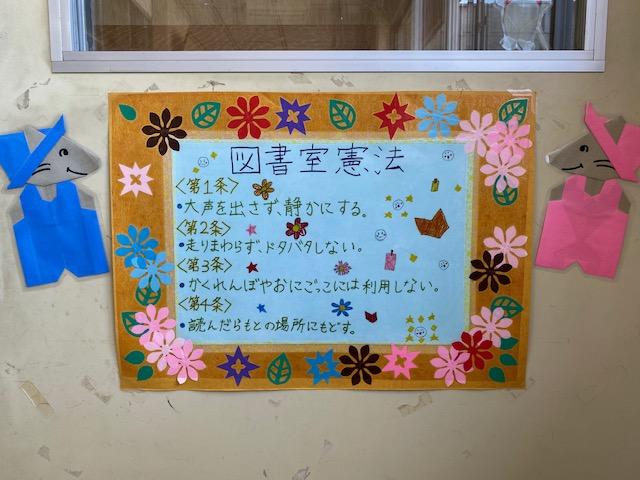 図書室憲法
<第1条>
•大声を出さず、静かにする。
<第2条>
•走りまわらず、ドタバタしない。
<第3条>
•かくれんぼやおにごっこには利用しない。
<第4条>
•読んだらもとの場所にもどす。